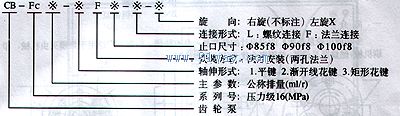 CB-Fc※-※F※-※-※
旋 向: 右旋(不标注) 左旋X
连接形式: L: 螺纹连接 F: 法兰连接
止口尺寸: Φ85f8 Φ90f8 Φ100f8
安装(两孔法兰)
轴伸形式: 1.平键 2.渐开线花键 3.矩形花键
主 参 数: 公称排量(ml/r)
系 列 号: 压力级16(MPa)
齿 轮 泵